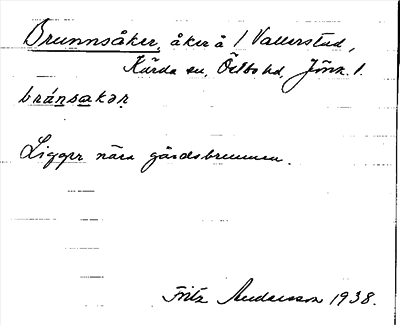 Brunnsåker, åker å 1 Vallerstad,
Kärda sn, Östbo hd Jönk. l.
brúnsakər
Ligger nära gårdsbrunnen.
Fritz Andersson 1938.